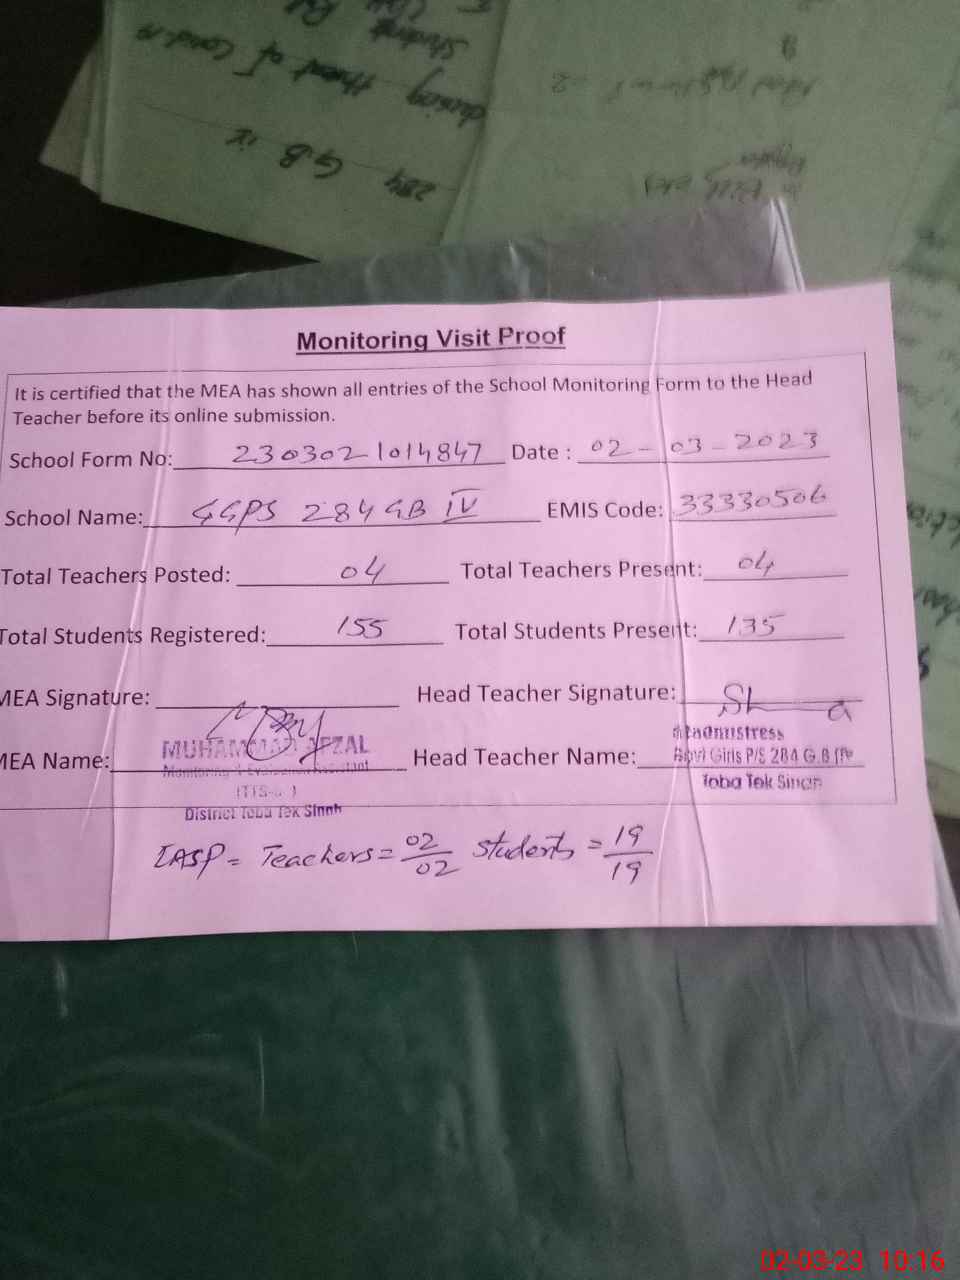 284 G.B iv
during
Student
Monitoring Visit Proof
It is certified that the MEA has shown all entries of the School Monitoring Form to the Head
Teacher before its online submission.
School Form No: 230302-1014847 Date : 02-03-2023
School Name: GGPS 284 GB IV EMIS Code: 33330506
Total Teachers Posted: 04 Total Teachers Present: 04
Total Students Registered: 155 Total Students Present: 135
MEA Signature: Head Teacher Signature:
MEA Name: MUHAMMAD AFZAL Head Teacher Name: Headmistress
Monitoring & Evaluation Assistant Govt Girls P/S 284 G.B
District Toba Tek Singh Toba Tek Singh
IASP = Teachers = 02/02 students = 19/19
02-03-23 10:16